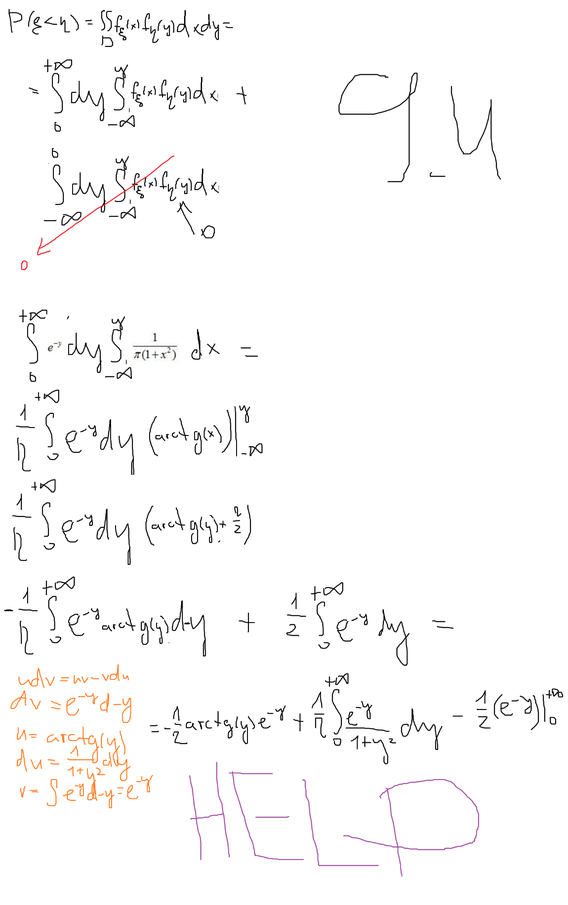 P(ξ<η) = ∬_D f_ξ(x) f_η(y) dx dy =
= ∫_0^{+∞} dy ∫_{-∞}^y f_ξ(x) f_η(y) dx +
9.4
∫_{-∞}^0 dy ∫_{-∞}^y f_ξ(x) f_η(y) dx
0
0
∫_0^{+∞} e^{-y} dy ∫_{-∞}^y 1/(π(1+x²)) dx =
1/π ∫_0^{+∞} e^{-y} dy (arctg(x))|_{-∞}^y
1/π ∫_0^{+∞} e^{-y} dy (arctg(y) + π/2)
-1/π ∫_0^{+∞} e^{-y} arctg(y) d-y + 1/2 ∫_0^{+∞} e^{-y} dy =
udv = uv - vdu
dv = e^{-y} d-y
u = arctg(y)
du = 1/(1+y²) dy
v = ∫ e^{-y} d-y = e^{-y}
= -1/2 arctg(y) e^{-y} + 1/π ∫_0^{+∞} e^{-y}/(1+y²) dy - 1/2 (e^{-y})|_0^{+∞}
HELP